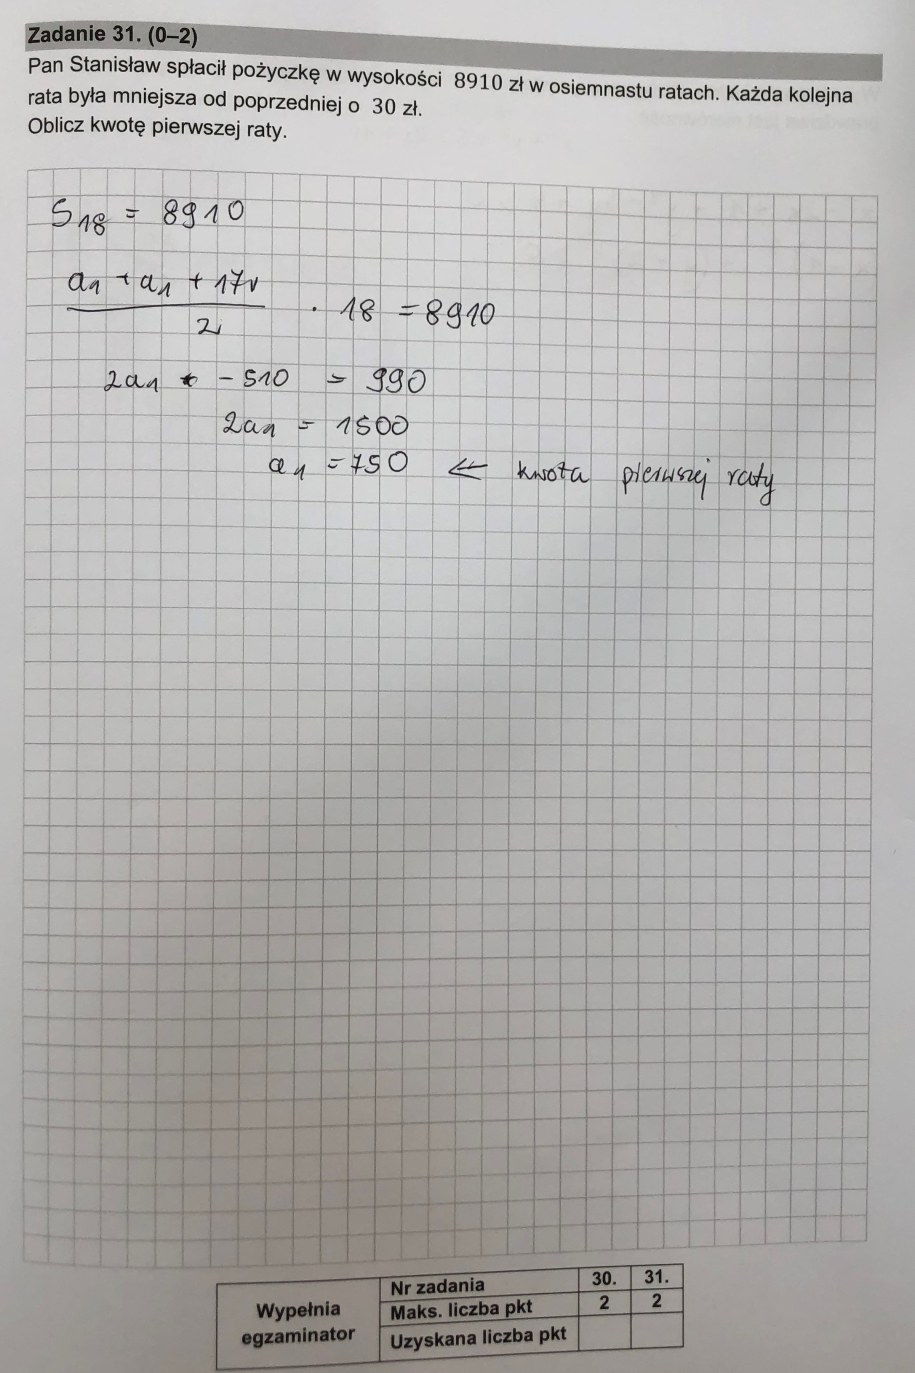 Zadanie 31. (0–2)
Pan Stanisław spłacił pożyczkę w wysokości 8910 zł w osiemnastu ratach. Każda kolejna
rata była mniejsza od poprzedniej o 30 zł.
Oblicz kwotę pierwszej raty.
S₁₈ = 8910
a₁ + a₁ + 17r
2 · 18 = 8910
2a₁ - 510 = 990
2a₁ = 1500
a₁ = 750 ⇐ kwota pierwszej raty
Wypełnia egzaminator
Nr zadania 30. 31.
Maks. liczba pkt 2 2
Uzyskana liczba pkt